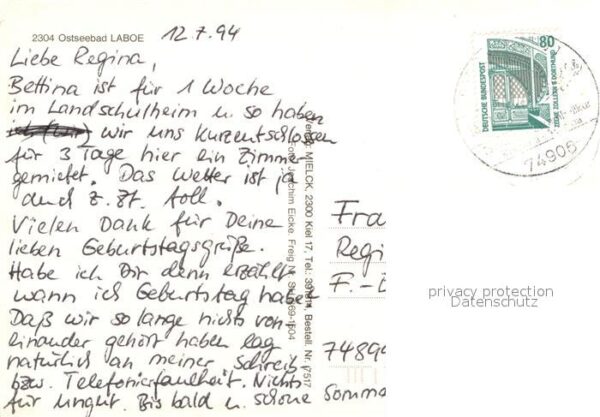 2304 Ostseebad LABOE
12.7.94
Liebe Regina,
Bettina ist für 1 Woche
im Landschulheim u. so haben
wir uns kurzentschlossen
für 3 Tage hier ein Zimmer
gemietet. Das Wetter ist ja
auch z. Zt. toll.
Vielen Dank für Deine
lieben Geburtstagsgrüße.
Habe ich Dir denn erzählt
wann ich Geburtstag habe?
Daß wir so lange nichts von-
einander gehört haben lag
natürlich an meiner Schreib
bzw. Telefonierfaulheit. Nichts
für ungut. Bis bald u. schöne Somme
MIELCK, 2300 Kiel 17, Tel.:
Bestell. Nr.
Joachim Eicke, Freig. Nr.
80
DEUTSCHE BUNDESPOST
ZECHE ZOLLERN II DORTMUND
74906
Fra
Regi
F.-
7489
privacy protection
Datenschutz